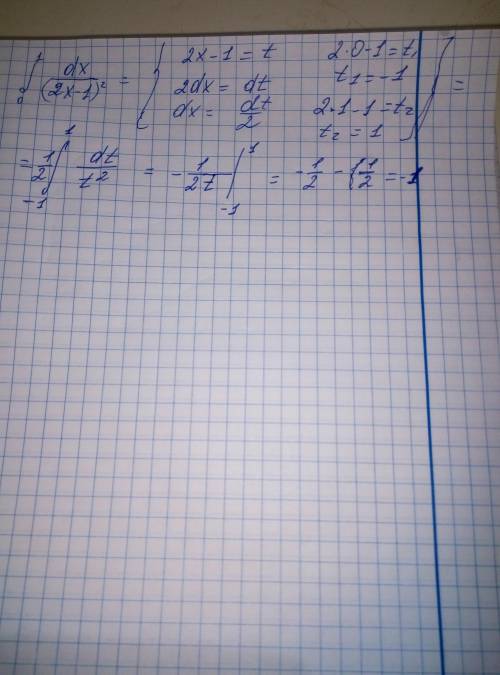 ∫₀¹ dx/(2x-1)² = { 2x-1=t 2·0-1=t₁
2dx=dt t₁=-1
dx=dt/2 2·1-1=t₂
t₂=1 } =
= 1/2 ∫₋₁¹ dt/t² = -1/2t |₋₁¹ = -1/2 - 1/2 = -1